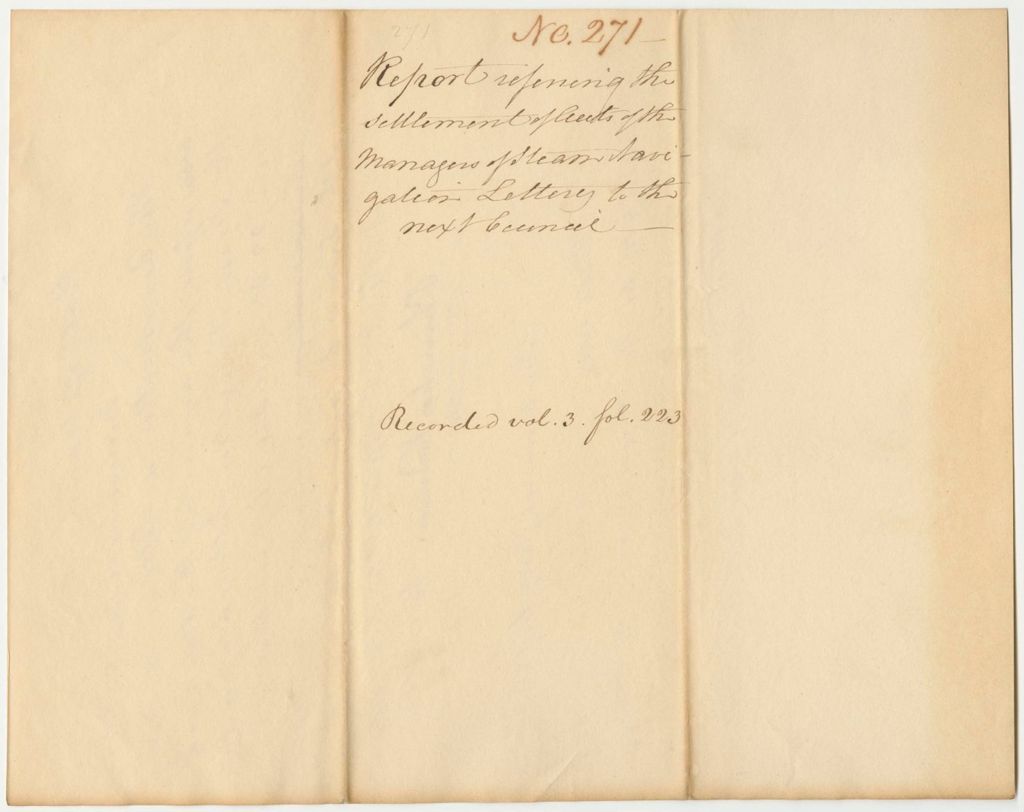 271
No. 271 —
Report refering the
settlement of Accts of the
Managers of Steam Navi-
gation Lottery to the
next Council —
Recorded vol. 3. fol. 223